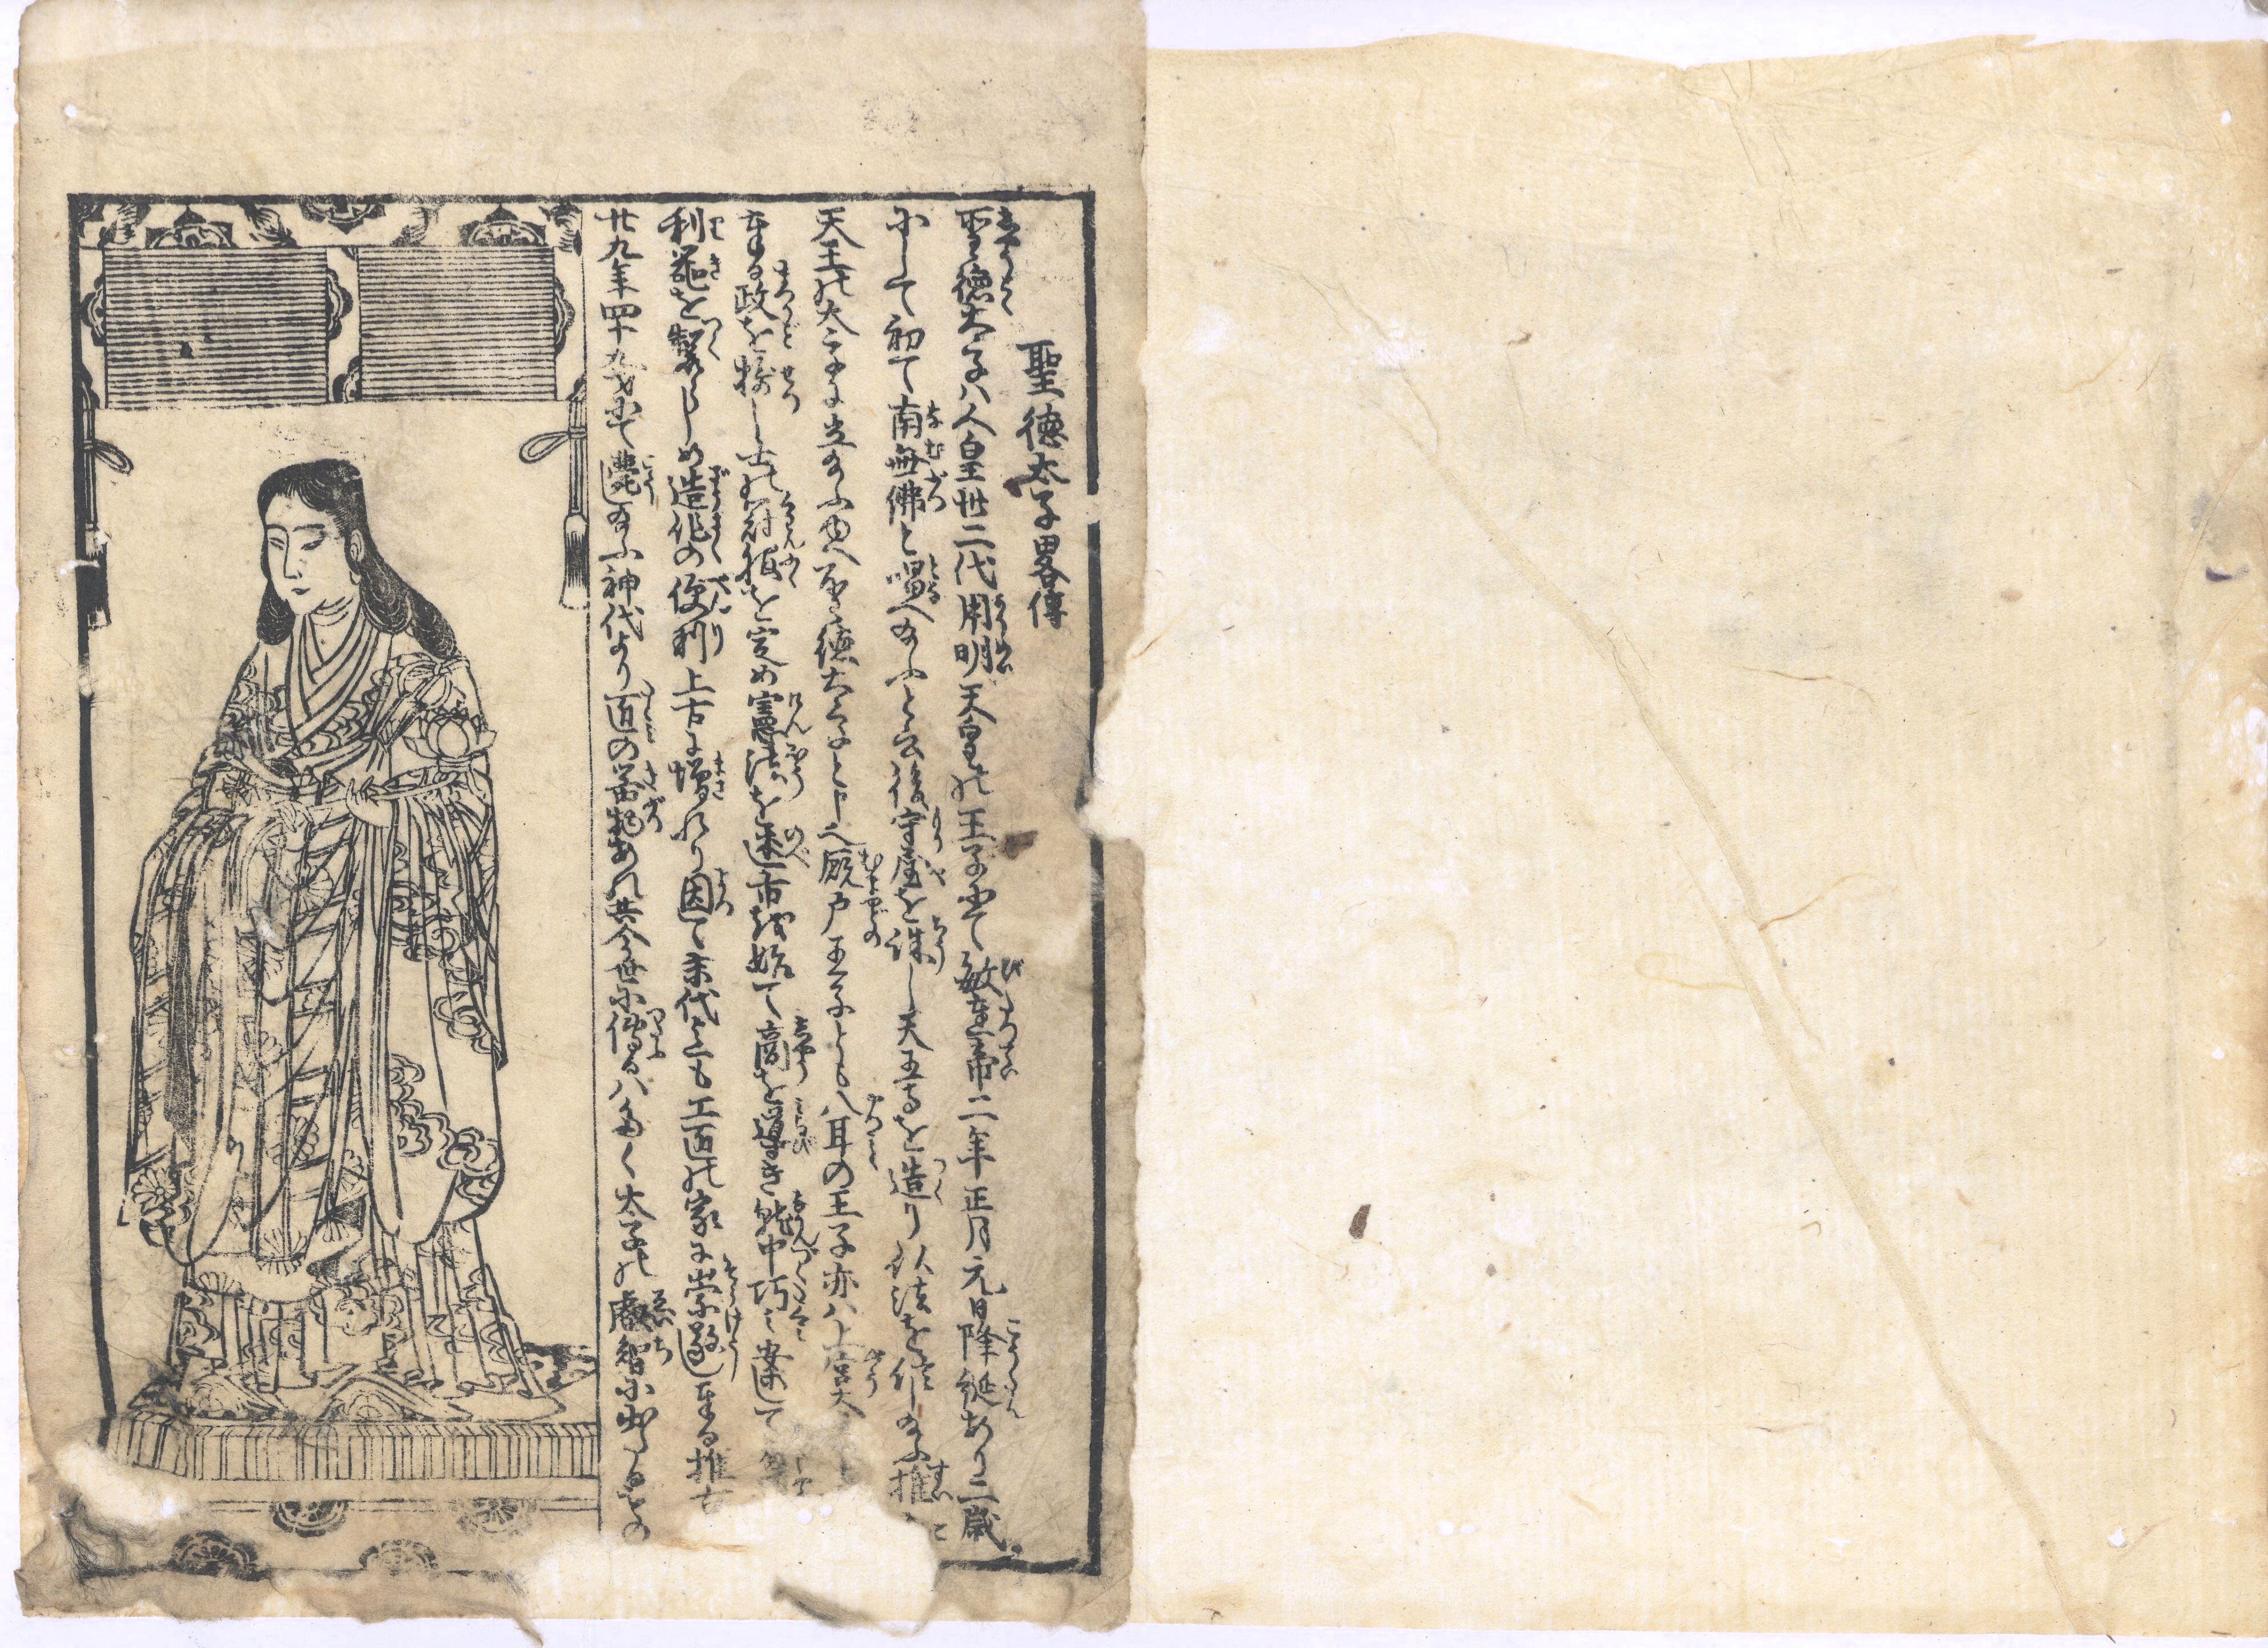 聖徳太子畧傳
聖徳太子ハ人皇卅二代用明天皇の王子にて敏達帝二年正月元日降誕あり二歳
にして初て南無佛と唱へ給ふと云後守屋を誅し天王寺を造り仏法を信じ給ふ推
天王の太子に立給ふゆへ聖徳太子と申又厩戸王子とも八耳の王子亦ハ上宮太
奉る政を摂し士の冠服を定め憲法を述市を始て商を導き就中巧に妾して
利器を製らしめ造作の便利上古に増れり因て末代とも工匠の家に崇敬し奉る推古
廿九年四十九才にて薨給ふ神代より匠の器物あれ共今世に傳るハ多く太子の叡智に出たるもの